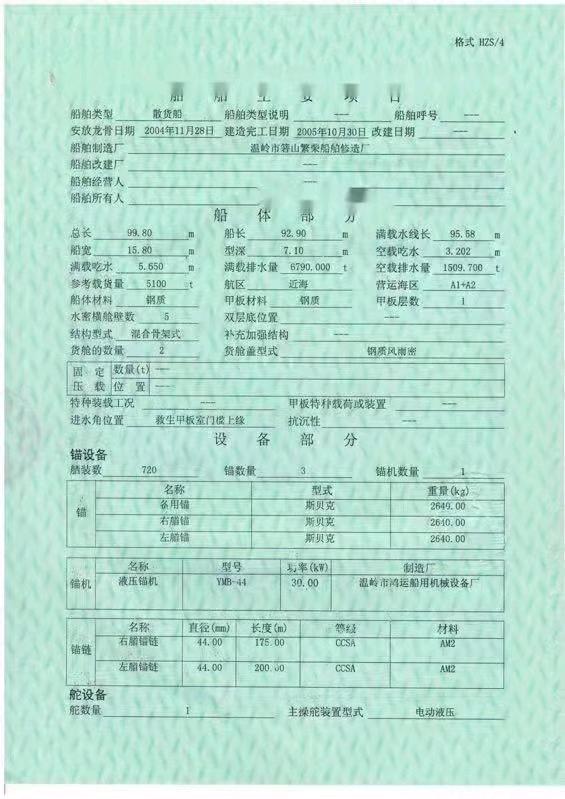 格式 HZS/4
船 舶 主 要 项 目
船舶类型 散货船 船舶类型说明 --- 船舶呼号 ---
安放龙骨日期 2004年11月28日 建造完工日期 2005年10月30日 改建日期 ---
船舶制造厂 温岭市箬山繁荣船舶修造厂
船舶改建厂 ---
船舶经营人 ---
船舶所有人
船 体 部 分
总长 99.80 m 船长 92.90 m 满载水线长 95.58 m
船宽 15.80 m 型深 7.10 m 空载吃水 3.202 m
满载吃水 5.650 m 满载排水量 6790.000 t 空载排水量 1509.700 t
参考载货量 5100 t 航区 近海 营运海区 A1+A2
船体材料 钢质 甲板材料 钢质 甲板层数 1
水密横舱壁数 5 双层底位置 ---
结构型式 混合骨架式 补充加强结构 ---
货舱的数量 2 货舱盖型式 钢质风雨密
固 定 数量(t) ---
压 载 位 置 ---
特种装载工况 --- 甲板特种载荷或装置 ---
进水角位置 救生甲板室门槛上缘 抗沉性 ---
设 备 部 分
锚设备
舾装数 720 锚数量 3 锚机数量 1
锚 名称 型式 重量(kg)
备用锚 斯贝克 2640.00
右船锚 斯贝克 2640.00
左船锚 斯贝克 2640.00
锚机 名称 型号 功率(kW) 制造厂
液压锚机 YMB-44 30.00 温岭市鸿运船用机械设备厂
锚链 名称 直径(mm) 长度(m) 等级 材料
右船锚链 44.00 175.00 CCSA AM2
左船锚链 44.00 200.00 CCSA AM2
舵设备
舵数量 1 主操舵装置型式 电动液压